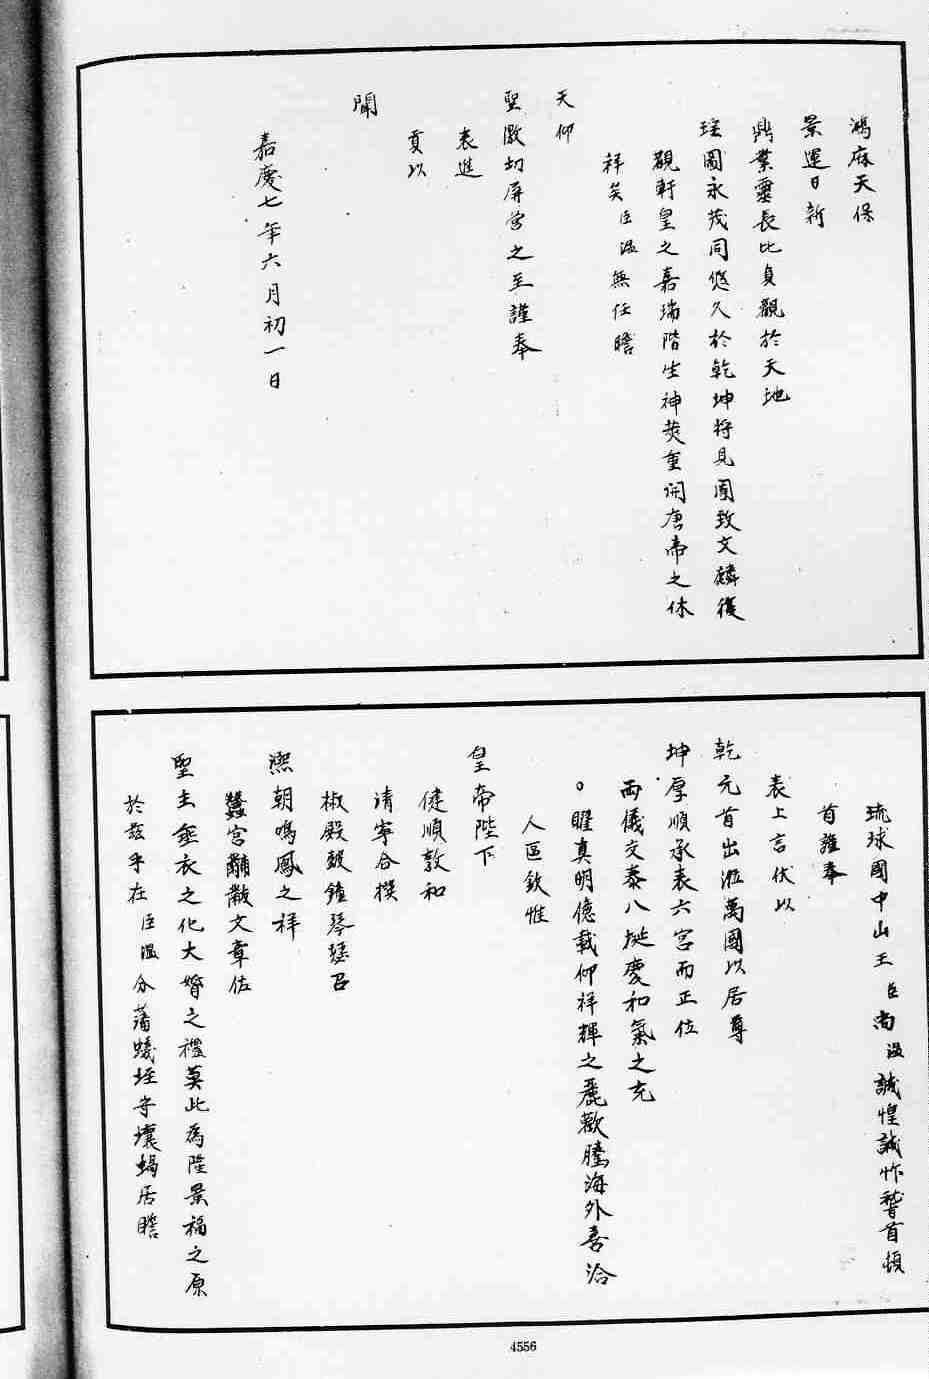 鴻庥天保
景運日新
鼎業靈長比貞觀於天地
瑤圖永茂同悠久於乾坤將見囿致文麟復
觀軒皇之嘉瑞階生神莢重開唐帝之休
祥矣臣温無任瞻
天仰
聖激切屏營之至謹奉
表進
賀以
聞
嘉慶七年六月初一日
琉球國中山王臣尚温誠惶誠忭稽首頓
首謹奉
表上言伏以
乾元首出涖萬國以居尊
坤厚順承表六宮而正位
兩儀文泰八埏慶和氣之充
。矅真明億載仰祥輝之麗歡騰海外喜洽
人區欽惟
皇帝陛下
健順敦和
清寧合撰
椒殿鼓鐘琴瑟召
熙朝鳴鳳之祥
蠶宮黼黻文章佐
聖主垂衣之化大婚之禮莫此為隆景福之原
於茲乎在臣温分藩蟻垤守壤蝸居瞻
4556